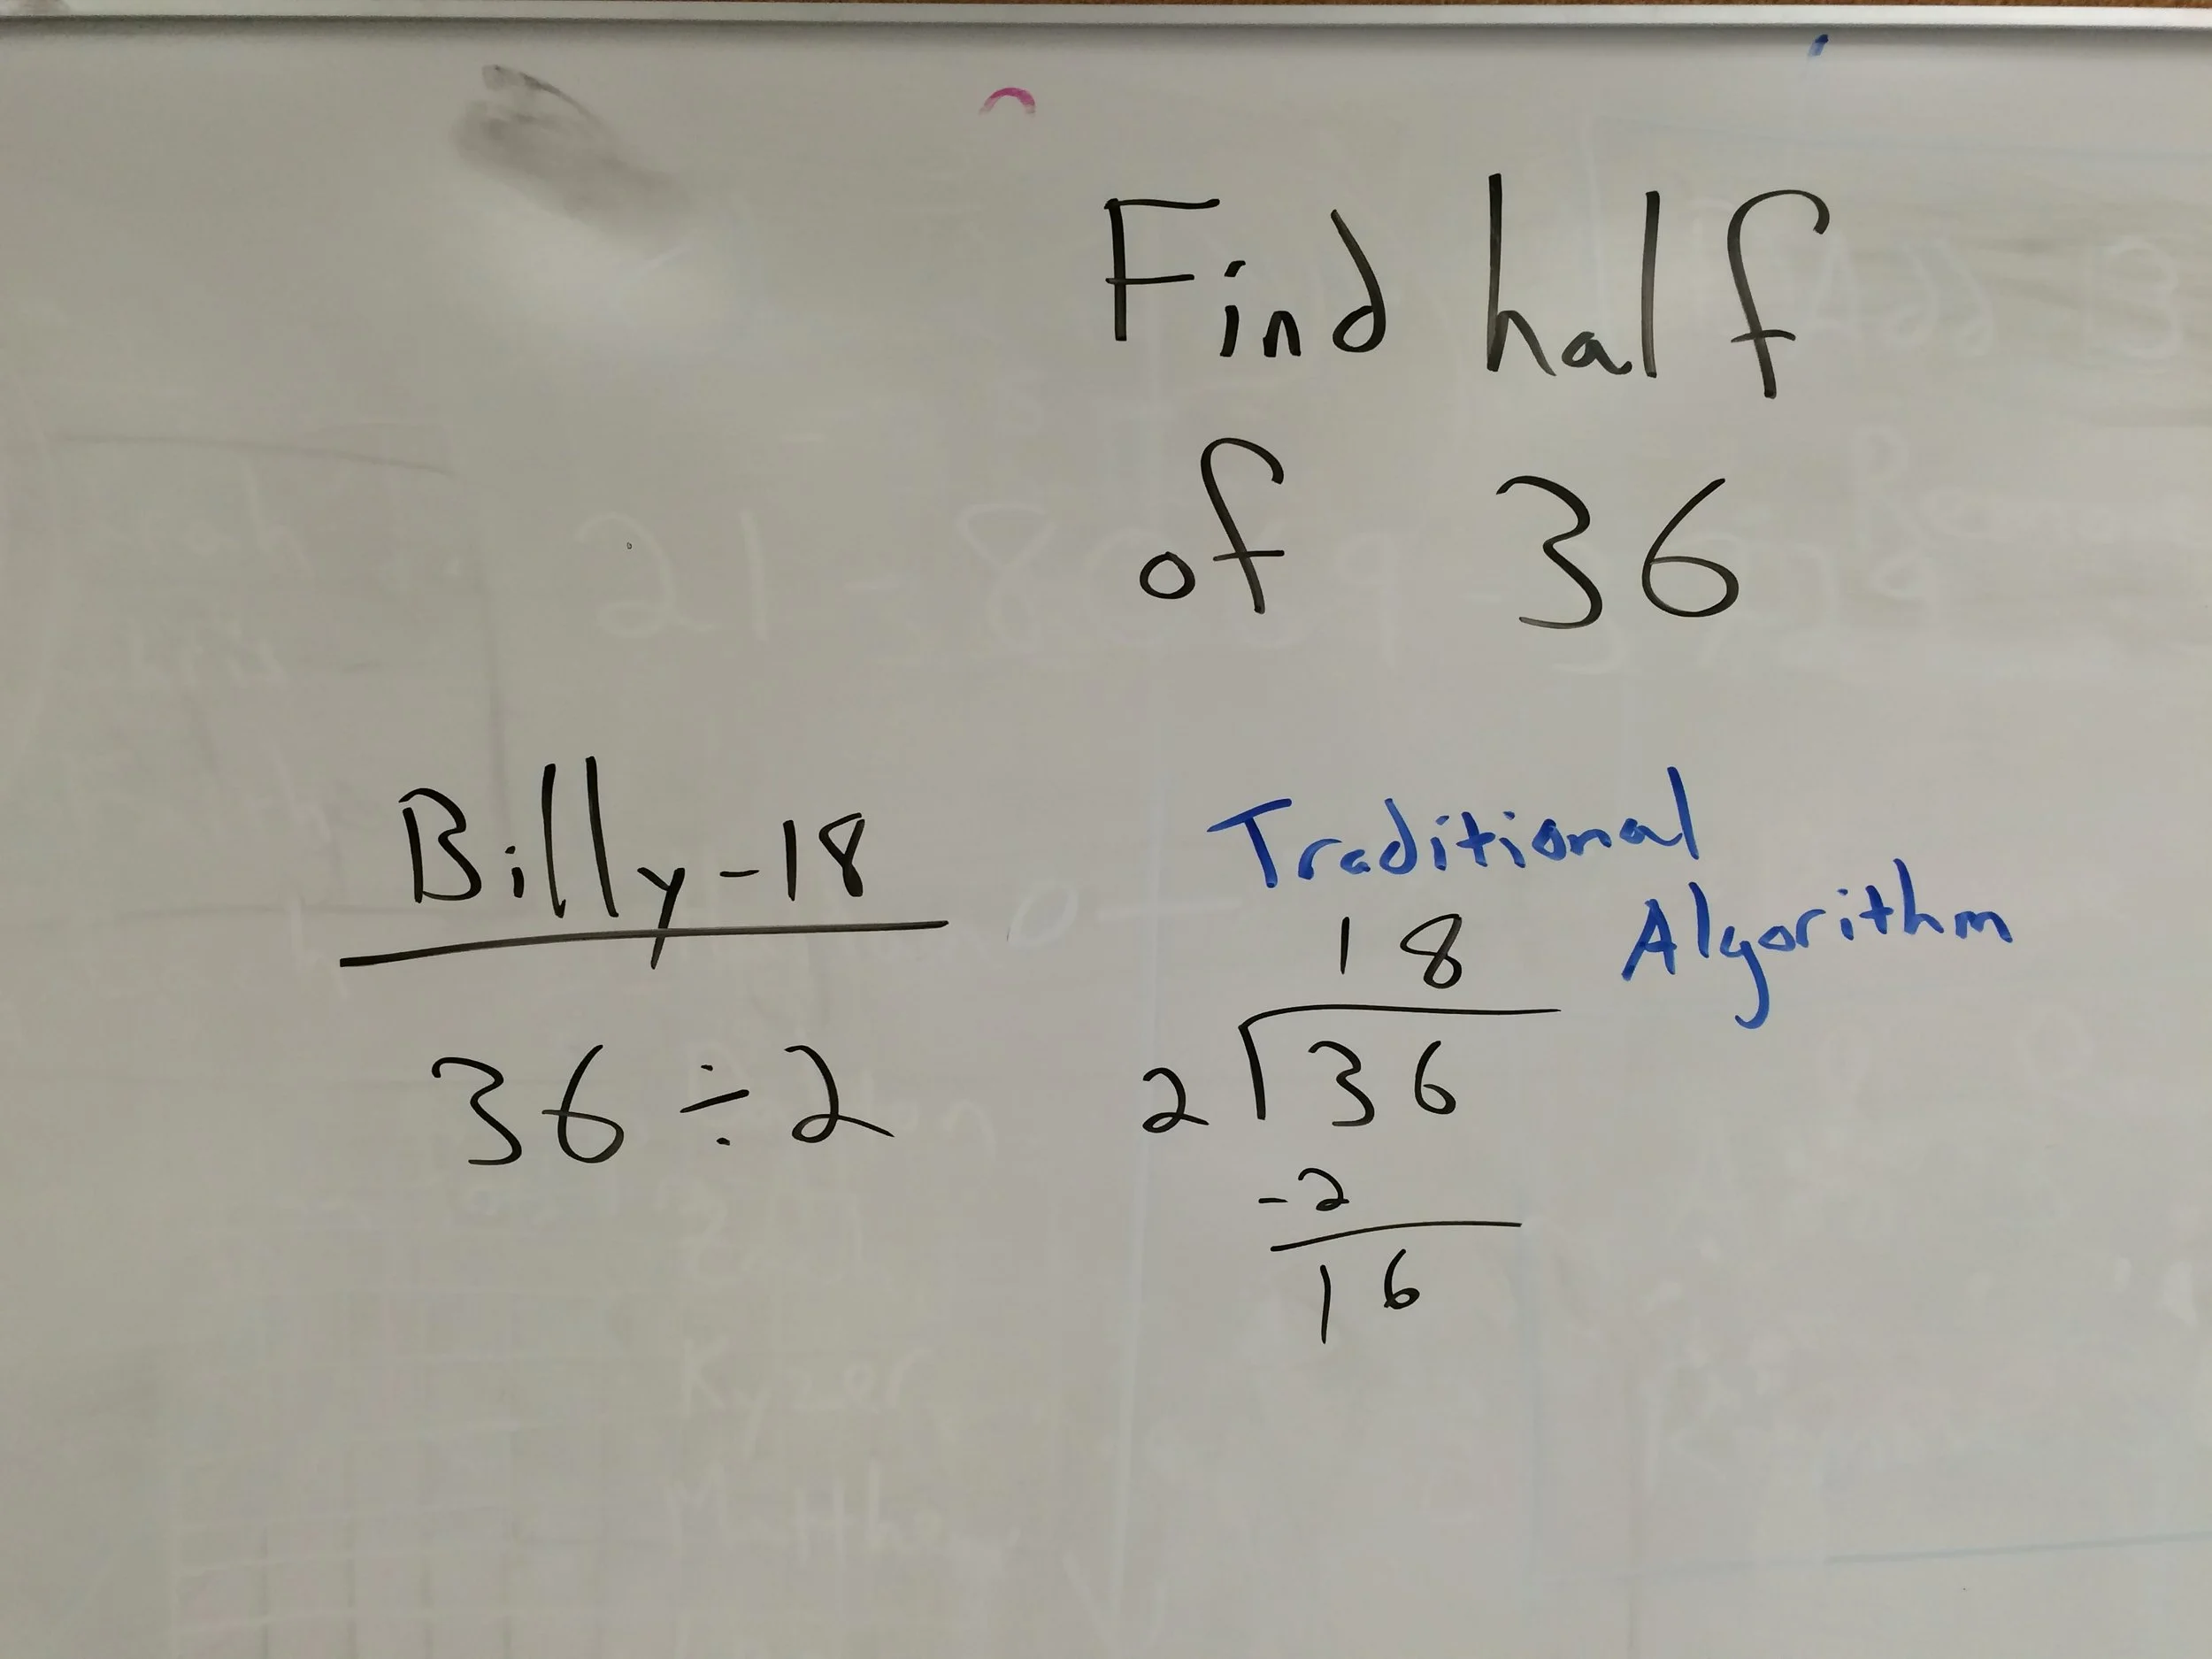 Find half
of 36
Billy-18
36÷2
Traditional
Algorithm
18
2 36
-2
16
Kyzer